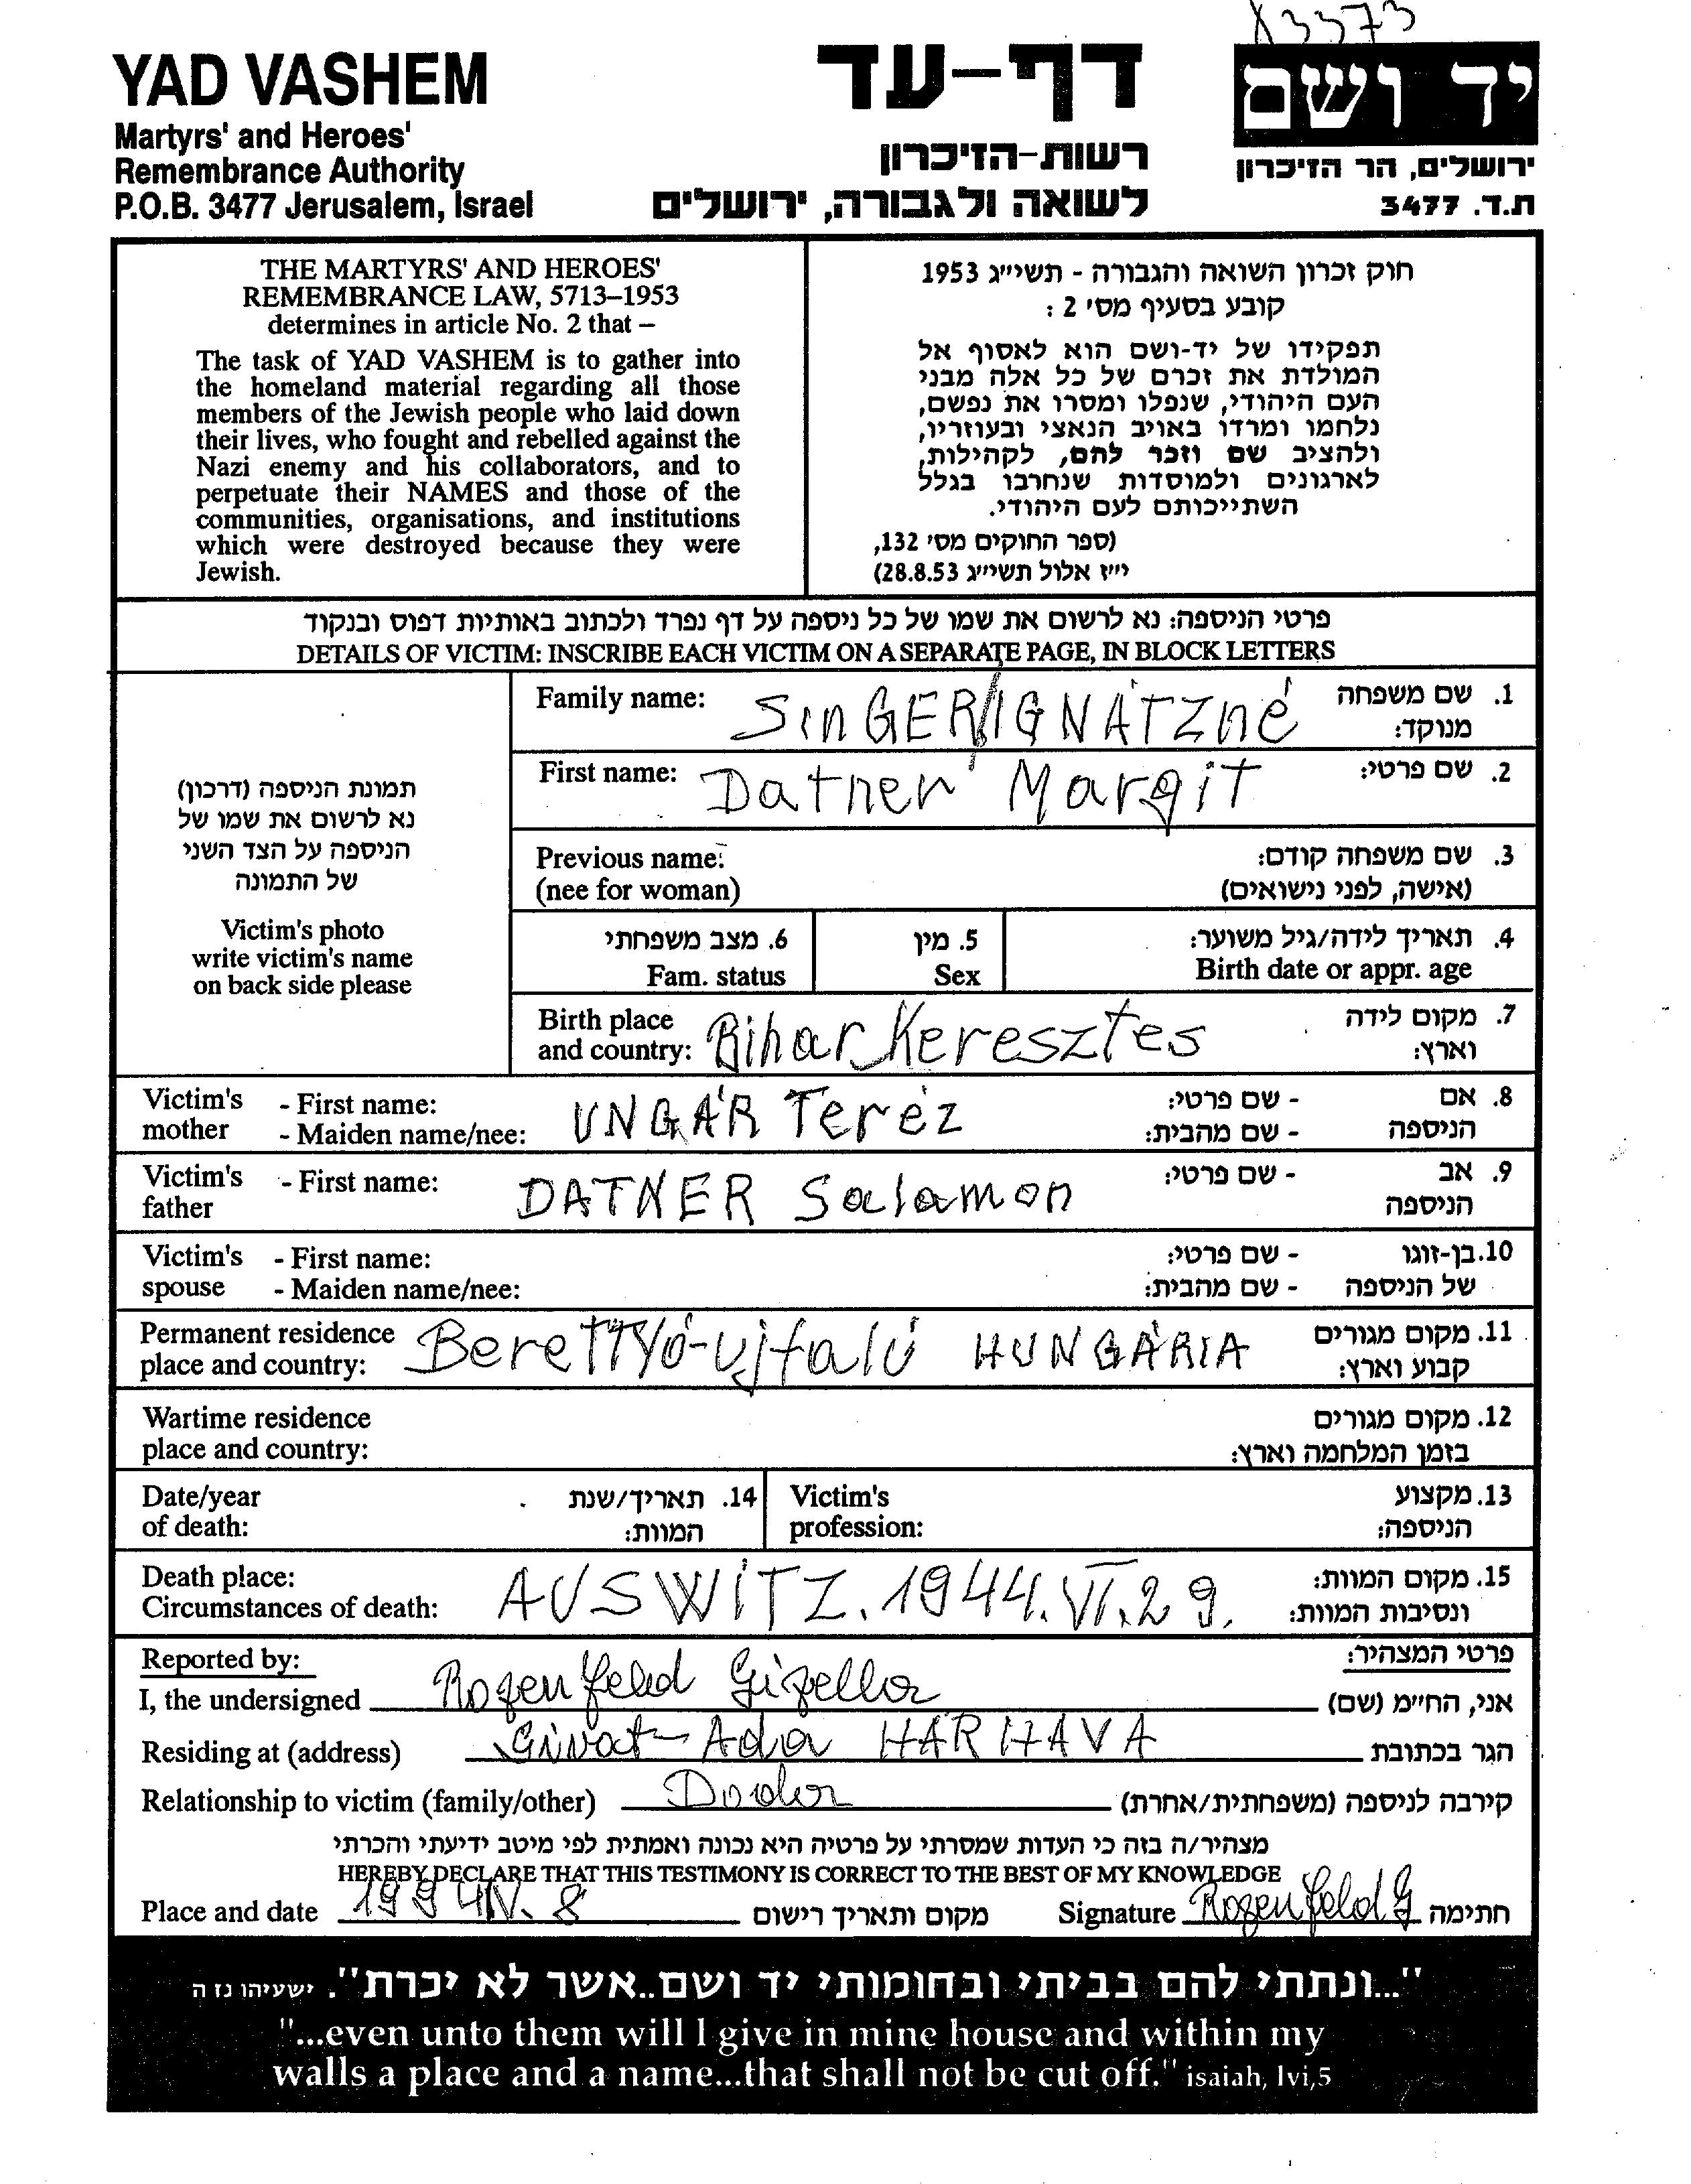 83373
YAD VASHEM
Martyrs' and Heroes'
Remembrance Authority
P.O.B. 3477 Jerusalem, Israel
דף-עד
רשות-הזיכרון
לשואה ולגבורה, ירושלים
יד ושם
ירושלים, הר הזיכרון
ת.ד. 3477
THE MARTYRS' AND HEROES'
REMEMBRANCE LAW, 5713–1953
determines in article No. 2 that –
The task of YAD VASHEM is to gather into
the homeland material regarding all those
members of the Jewish people who laid down
their lives, who fought and rebelled against the
Nazi enemy and his collaborators, and to
perpetuate their NAMES and those of the
communities, organisations, and institutions
which were destroyed because they were
Jewish.
חוק זכרון השואה והגבורה - תשי״ג 1953
קובע בסעיף מס׳ 2 :
תפקידו של יד-ושם הוא לאסוף אל
המולדת את זכרם של כל אלה מבני
העם היהודי, שנפלו ומסרו את נפשם,
נלחמו ומרדו באויב הנאצי ובעוזריו,
ולהציב שם וזכר להם, לקהילות,
לארגונים ולמוסדות שנחרבו בגלל
השתייכותם לעם היהודי.
(ספר החוקים מס׳ 132,
י״ז אלול תשי״ג 28.8.53)
פרטי הניספה: נא לרשום את שמו של כל ניספה על דף נפרד ולכתוב באותיות דפוס ובנקוד
DETAILS OF VICTIM: INSCRIBE EACH VICTIM ON A SEPARATE PAGE, IN BLOCK LETTERS
תמונת הניספה (דרכון)
נא לרשום את שמו של
הניספה על הצד השני
של התמונה
Victim's photo
write victim's name
on back side please
Family name: SinGER/IGNÁTZné 1. שם משפחה
מנוקד:
First name: Datner Margit 2. שם פרטי:
Previous name: 3. שם משפחה קודם:
(nee for woman) (אישה, לפני נישואים)
6. מצב משפחתי 5. מין 4. תאריך לידה/גיל משוער:
Fam. status Sex Birth date or appr. age
Birth place 7. מקום לידה
and country: Bihar Keresztes וארץ:
Victim's - First name: - שם פרטי: 8. אם
mother - Maiden name/nee: UNGÁR Teréz - שם מהבית: הניספה
Victim's - First name: DATNER Salamon - שם פרטי: 9. אב
father הניספה
Victim's - First name: - שם פרטי: 10. בן-זוגו
spouse - Maiden name/nee: - שם מהבית: של הניספה
Permanent residence 11. מקום מגורים
place and country: Berettyó-ujfalú HUNGÁRIA קבוע וארץ:
Wartime residence 12. מקום מגורים
place and country: בזמן המלחמה וארץ:
Date/year 14. תאריך/שנת Victim's 13. מקצוע
of death: המוות: profession: הניספה:
Death place: 15. מקום המוות:
Circumstances of death: AUSWITZ. 1944. VI. 29. ונסיבות המוות:
Reported by: פרטי המצהיר:
I, the undersigned Rozenfeld Gizella אני, החי״מ (שם)
Residing at (address) Givat-Ada HARHAVA הגר בכתובת
Relationship to victim (family/other) Doda קירבה לניספה (משפחתית/אחרת)
מצהיר/ה בזה כי העדות שמסרתי על פרטיה היא נכונה ואמתית לפי מיטב ידיעתי והכרתי
HEREBY DECLARE THAT THIS TESTIMONY IS CORRECT TO THE BEST OF MY KNOWLEDGE
Place and date 1994 IV. 8 מקום ותאריך רישום Signature Rozenfeld G חתימה
"...ונתתי להם בביתי ובחומותי יד ושם..אשר לא יכרת". ישעיהו נז ה
"...even unto them will I give in mine house and within my
walls a place and a name...that shall not be cut off." isaiah, lvi,5